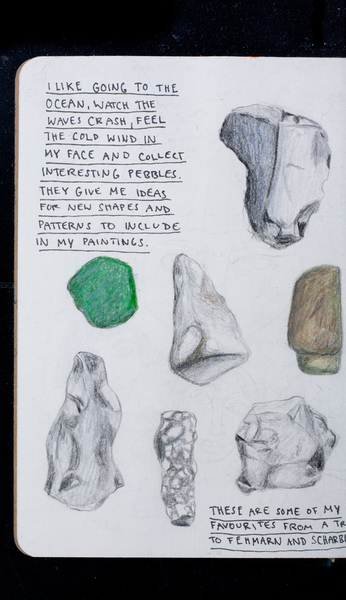 I LIKE GOING TO THE
OCEAN, WATCH THE
WAVES CRASH, FEEL
THE COLD WIND IN
MY FACE AND COLLECT
INTERESTING PEBBLES.
THEY GIVE ME IDEAS
FOR NEW SHAPES AND
PATTERNS TO INCLUDE
IN MY PAINTINGS.
THESE ARE SOME OF MY
FAVOURITES FROM A
TO FEHMARN AND